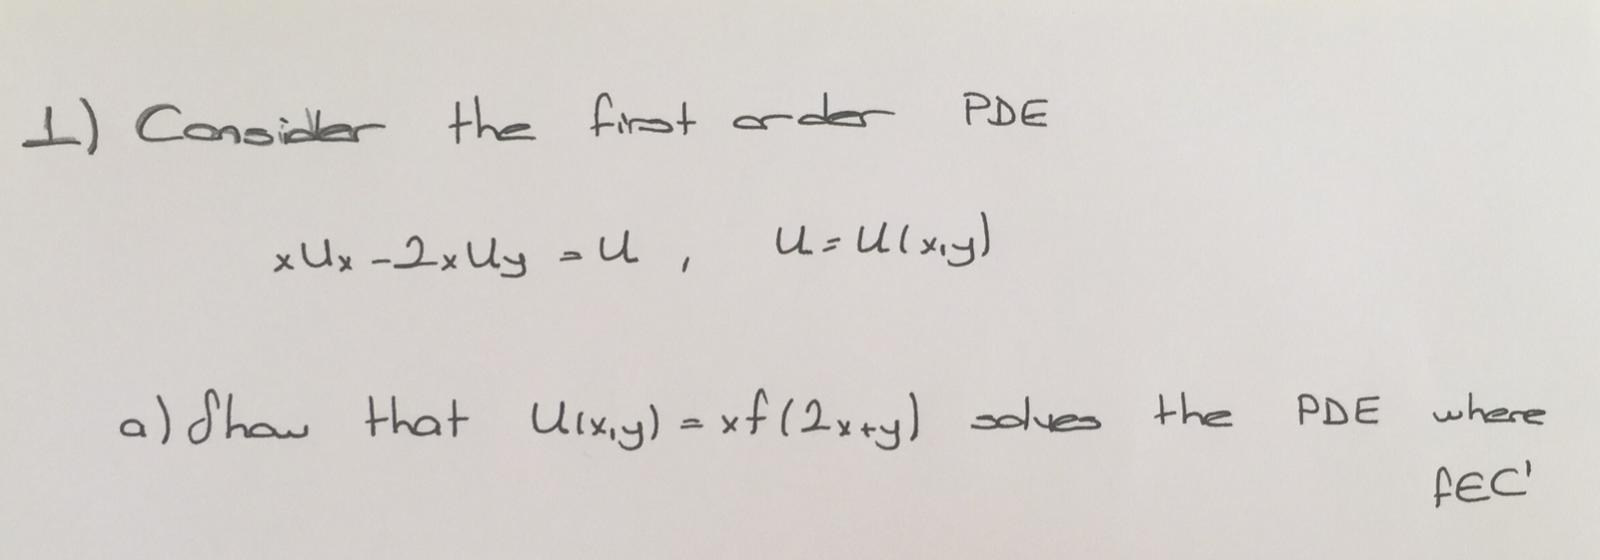 1) Consider the first order PDE
xUx - 2xUy = U , U = U(x,y)
a) Show that U(x,y) = xf(2x+y) solves the PDE where
f∈C'